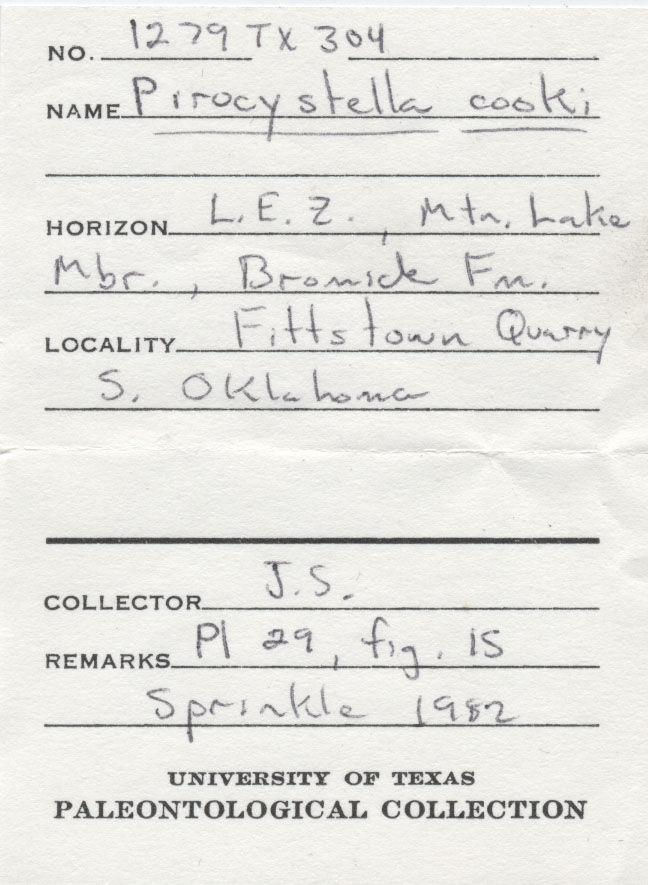 NO. 1279 TX 304
NAME Pirocystella cooki
HORIZON L.E.Z., Mtn. Lake
Mbr., Bromide Fm.
LOCALITY Fittstown Quarry
S. Oklahoma
COLLECTOR J.S.
REMARKS Pl 29, fig. 15
Sprinkle 1982
UNIVERSITY OF TEXAS
PALEONTOLOGICAL COLLECTION